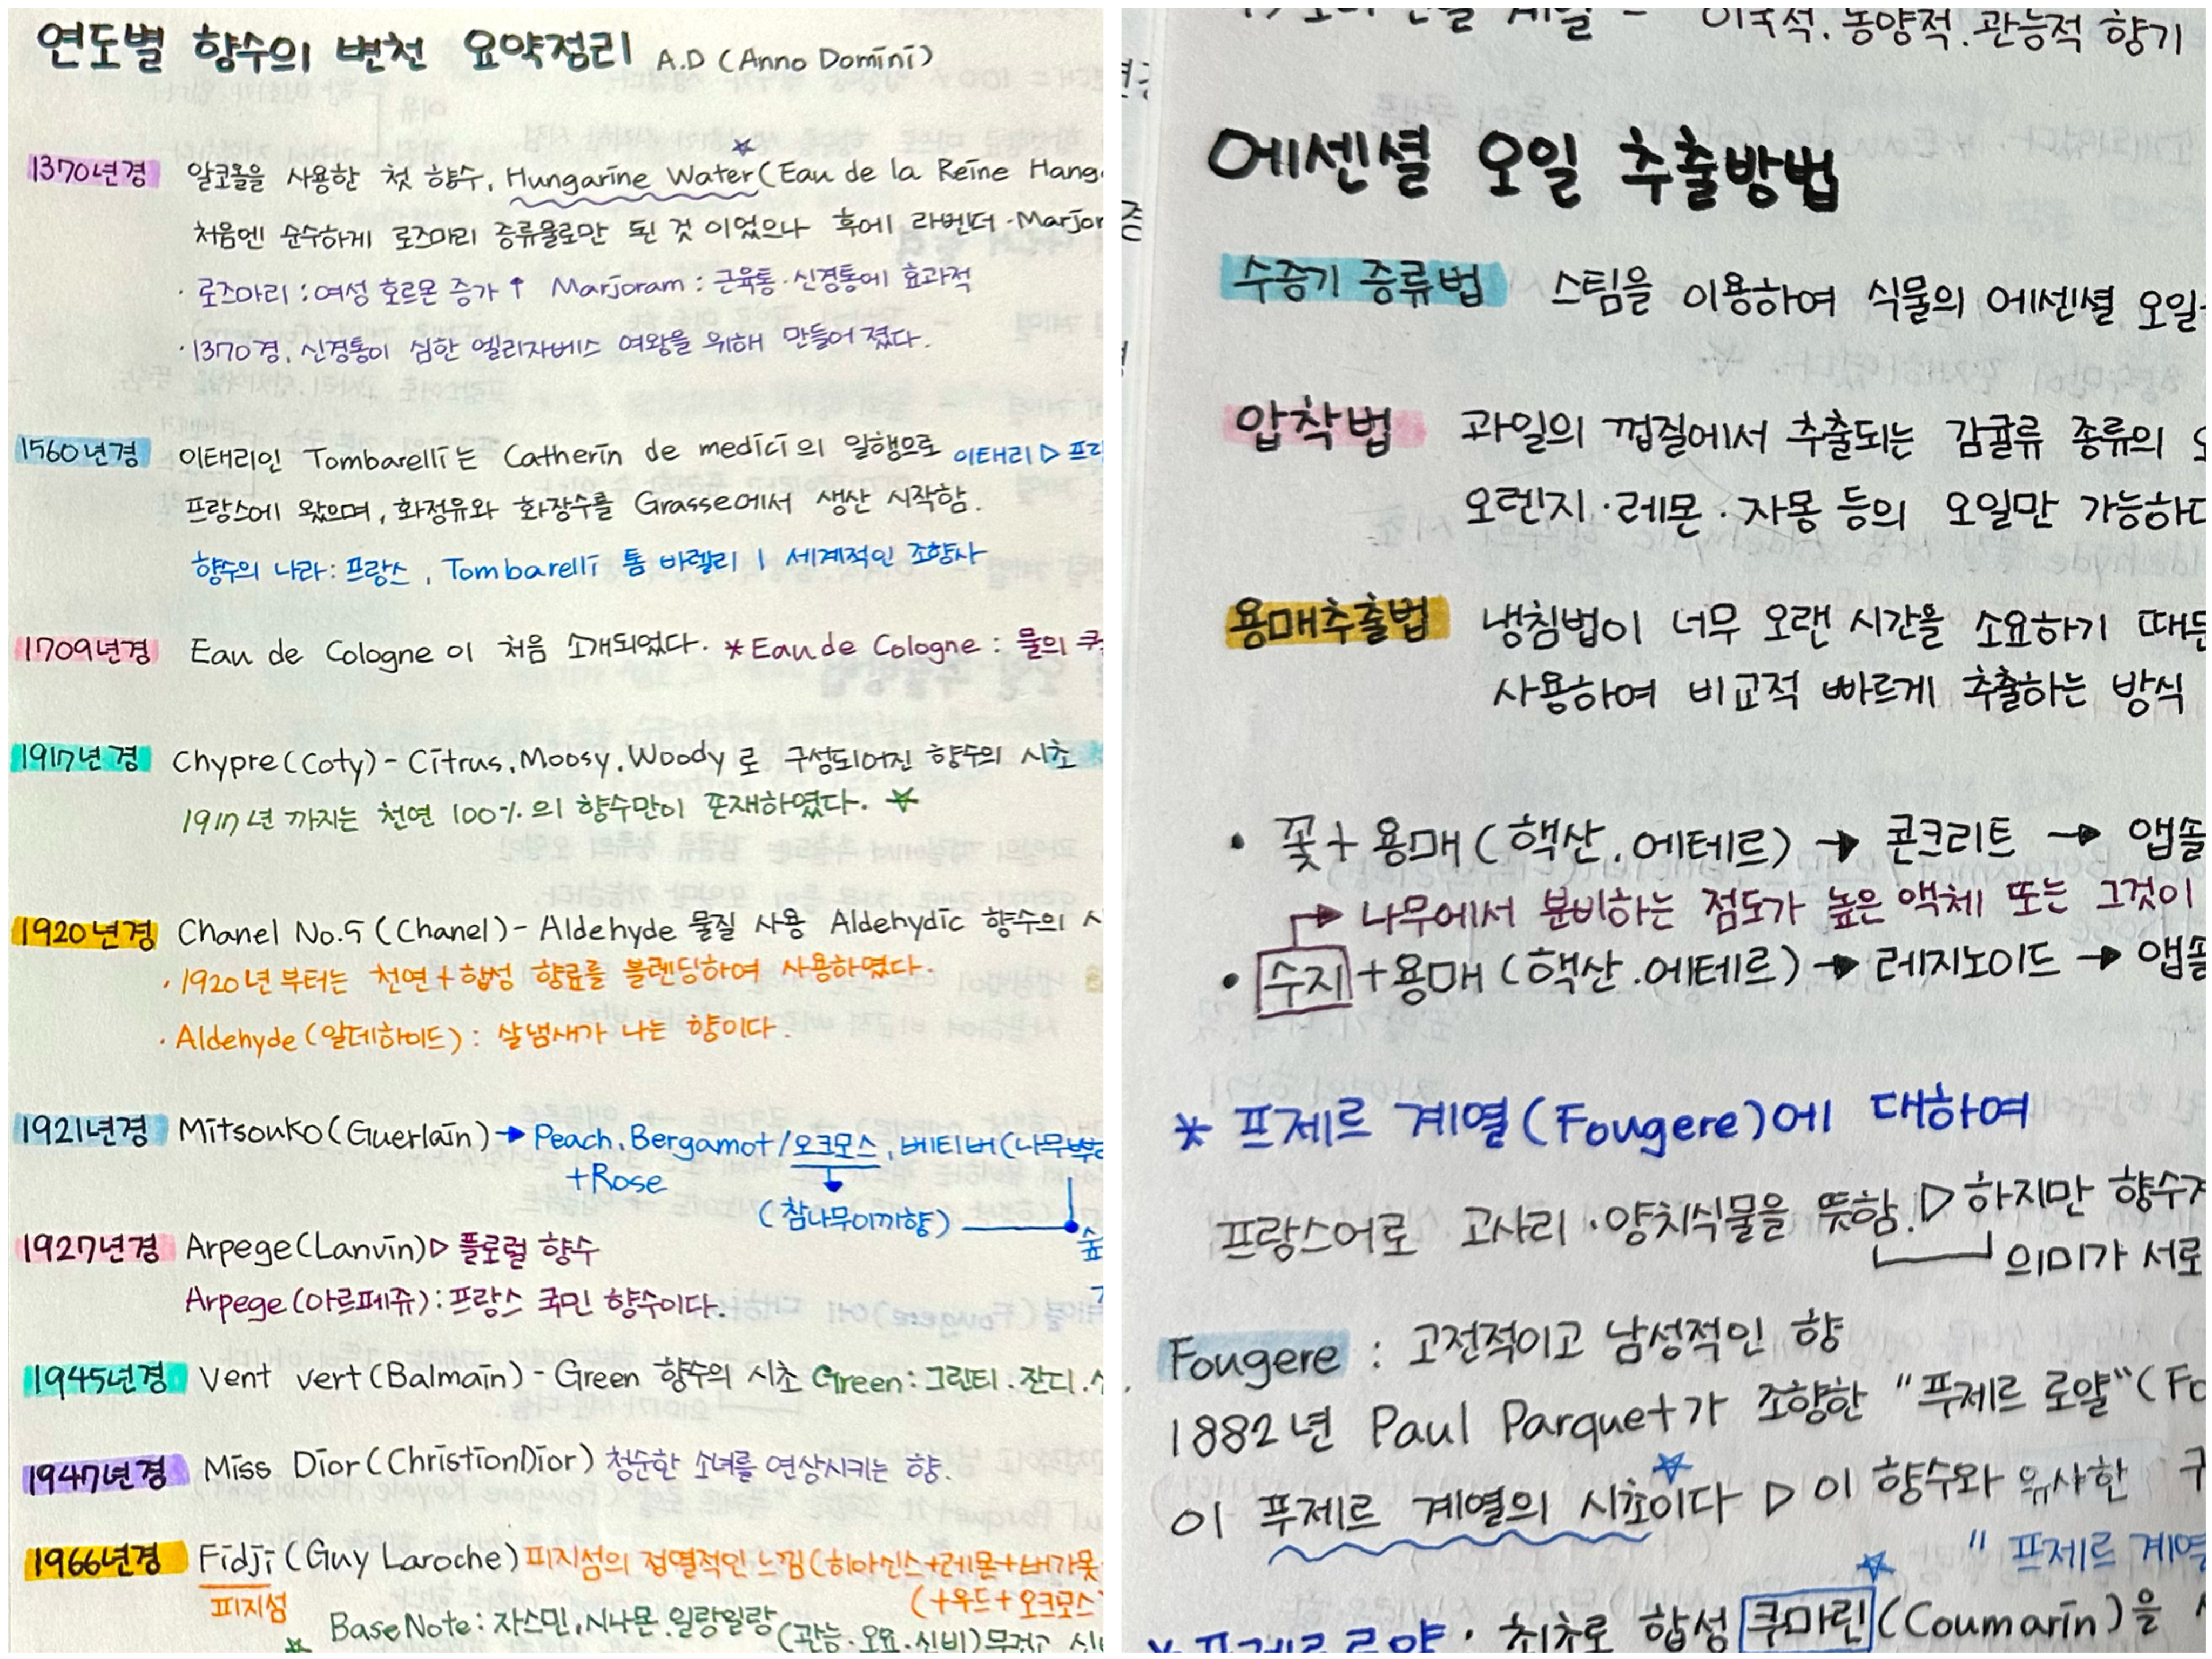 연도별 향수의 변천 요약정리 A.D (Anno Domini)
1370년경 알코올을 사용한 첫 향수, Hungarine Water (Eau de la Reine
처음엔 순수하게 로즈마리 증류물로만 된 것 이었으나 후에 라벤더 ·
· 로즈마리 : 여성 호르몬 증가 ↑ Marjoram : 근육통·신경통에 효과적
· 1370경, 신경통이 심한 엘리자베스 여왕을 위해 만들어 졌다.
1560년경 이태리인 Tombarelli는 Catherin de medici의 일행으로 이태리 ▷
프랑스에 왔으며, 화정유와 화장수를 Grasse에서 생산 시작함.
향수의 나라 : 프랑스, Tombarelli 톰 바렐리 | 세계적인 조향사
1709년경 Eau de Cologne 이 처음 소개되었다. * Eau de Cologne : 물의
1917년경 Chypre (Coty) - Citrus, Moosy, Woody 로 구성되어진 향수의 시초
1917년 까지는 천연 100% 의 향수만이 존재하였다. ☆
1920년경 Chanel No.5 (Chanel) - Aldehyde 물질 사용 Aldehydic 향수의
· 1920년 부터는 천연 + 합성 향료를 블렌딩하여 사용하였다.
· Aldehyde (알데하이드) : 살냄새가 나는 향이다.
1921년경 Mitsouko (Guerlain) → Peach, Bergamot / 오크모스, 베티버 (나무뿌리
+Rose
(참나무이끼향)
1927년경 Arpege (Lanvin) ▷ 플로럴 향수
Arpege (아르페쥬) : 프랑스 국민 향수이다.
1945년경 Vent vert (Balmain) - Green 향수의 시초 Green : 그린티 . 잔디 .
1947년경 Miss Dior (ChristionDior) 청순한 소녀를 연상시키는 향.
1966년경 Fidji (Guy Laroche) 피지섬의 정열적인 느낌 (히아신스+레몬+버가못
피지섬
(+우드+오크모스
☆ Base Note : 자스민, 시나몬, 일랑일랑 (관능·오묘·신비)
이국적. 동양적. 관능적 향기
에센셜 오일 추출방법
수증기 증류법 스팀을 이용하여 식물의 에센셜 오일
압착법 과일의 껍질에서 추출되는 감귤류 종류의
오렌지 · 레몬 · 자몽 등의 오일만 가능하다
용매추출법 냉침법이 너무 오랜 시간을 소요하기 때문
사용하여 비교적 빠르게 추출하는 방식
· 꽃 + 용매 (핵산. 에테르) → 콘크리트 → 앱솔
→ 나무에서 분비하는 점도가 높은 액체 또는 그것이
· 수지 + 용매 (핵산. 에테르) → 레지노이드 → 앱솔
* 프제르 계열 (Fougere)에 대하여
프랑스어로 고사리 · 양치식물을 뜻함. ▷ 하지만
의미가 서로
Fougere : 고전적이고 남성적인 향
1882년 Paul Parquet가 조향한 "푸제르 로얄" (Fo
이 푸제르 계열의 시초이다 ▷ 이 향수와 유사한
" 프제르 계열
최초로 합성 쿠마린 (Coumarin)을